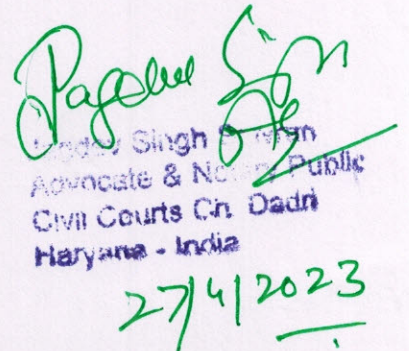 Singh
Advocate & Notary Public
Civil Courts Ch. Dadri
Haryana - India
27/4/2023